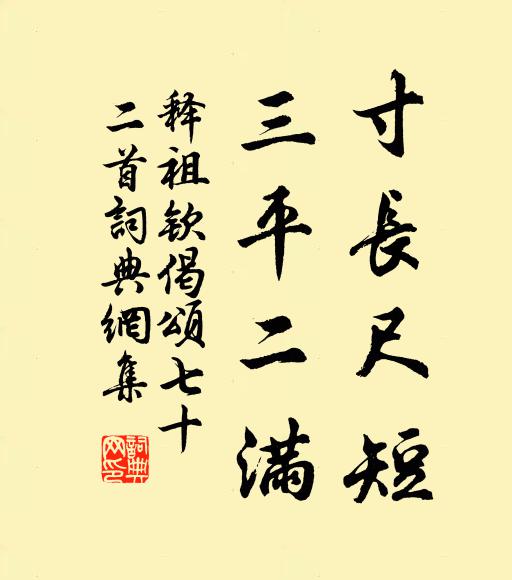 寸長尺短
三平二滿
释祖欽偈頌七十
二首詞典網集
詞典网印